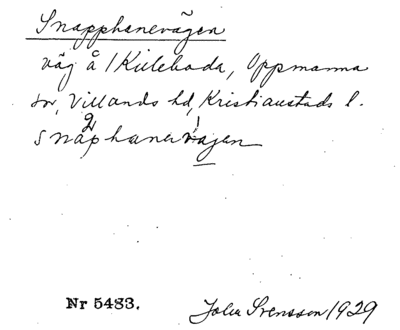 Snapphanevägen
väg å 1 Kulleboda, Oppmanna
sn, Villands hd, Kristianstads l.
snaphanevägen
Nr 5483.
John Svensson 1929